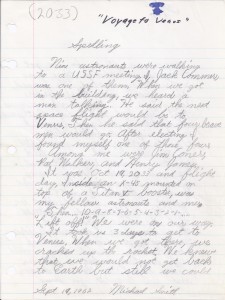 (2033)
"Voyage to Venus"
Spelling
Nine astronauts were walking
to a USSF meeting. Jack Connors
was one of them. When we got
in the building, we heard a
man talking. He said the next
space flight would be to
Venus. Then he said that four brave
men would go. After electing I
found myself one of those four.
Among me were Jim Conners,
Bob Wallace, and Henry
It was Oct. 19, 2033 and flight
day. mounted on
top of a giant booster, was
my fellow astronauts and me.
10-9-8-7-6-5-4-3-2-1-
off! We were on our way.
It took us 3 days to get to
Venus. When we got there, we
cracked up the rocket. We knew
that we would not get back
to Earth but still we could
Sept. 18, 1962 Michael Scott